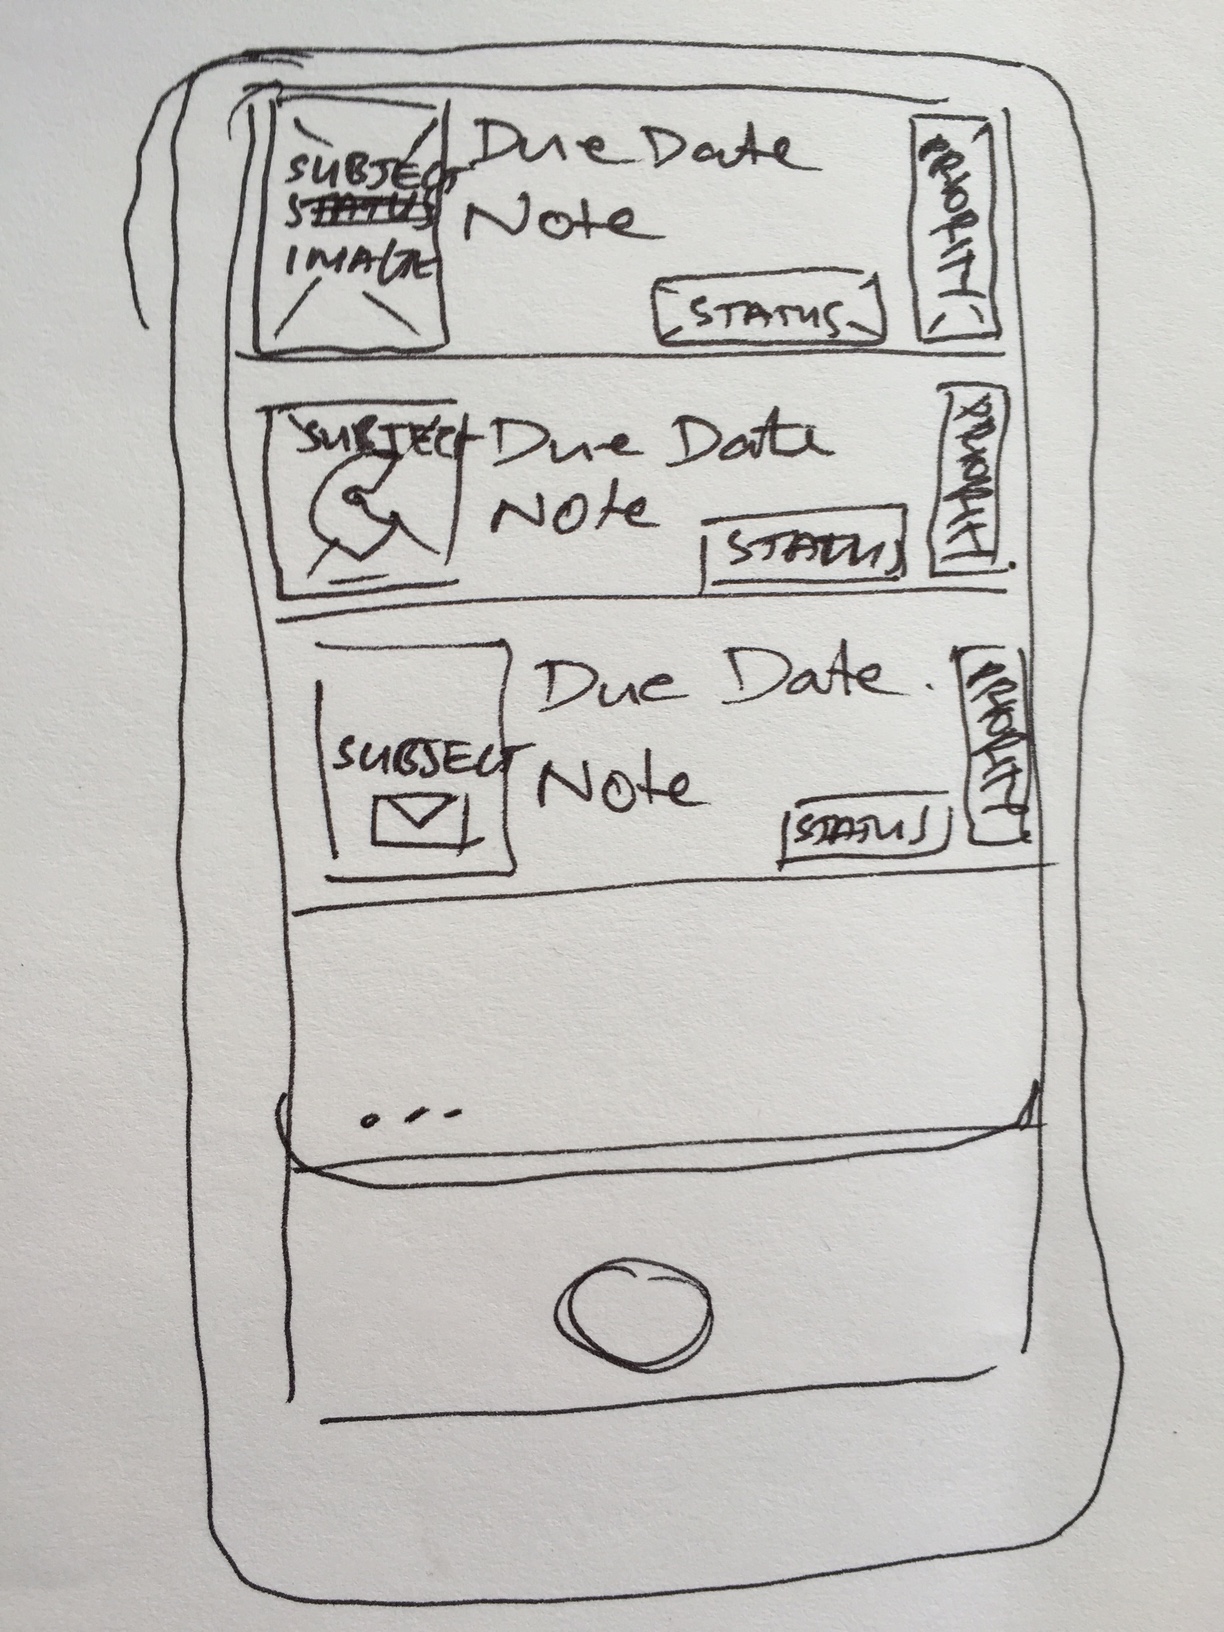 SUBJECT
STATUS
IMAGE
Due Date
Note
STATUS
PRIORITY
SUBJECT
Due Date
Note
STATUS
PRIORITY
SUBJECT
Due Date.
Note
STATUS
PRIORITY
...